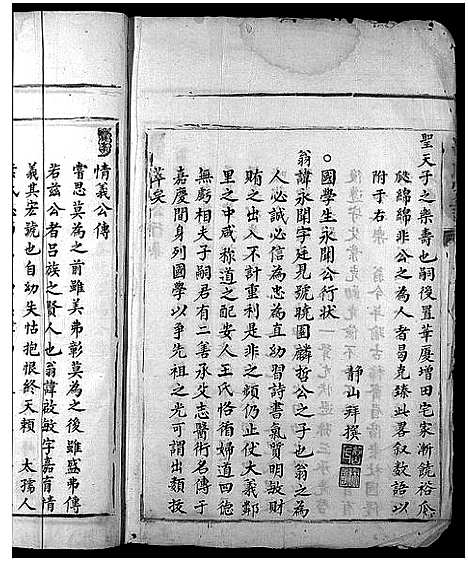 聖天子之樂壽也嗣後置華厦增田宅家漸饒裕瓜
瓞綿綿非公之為人者曷克臻此畧叙數語以
附于右
靜山拜撰
○國學生永開公行狀
翁諱永開字廷見號曉園麟哲公之子也翁之為
人必誠必信為忠為直幼習詩書氣質明敏財
賄之出入不計重利是非之頻仍止仗大義鄰
里之中咸稱道之配安人王氏恪循婦道四德
無虧相夫子嗣君有二善承父志醫術名傳于
嘉慶間身列國學以爭先祖之光可謂出類拔
萃矣
情義公傳
嘗思莫為之前雖美弗彰莫為之後雖盛弗傳
若兹公者吕族之賢人也翁諱啟敏字嘉有情
義其宏號也自幼失怙抱恨終天賴 太孺人